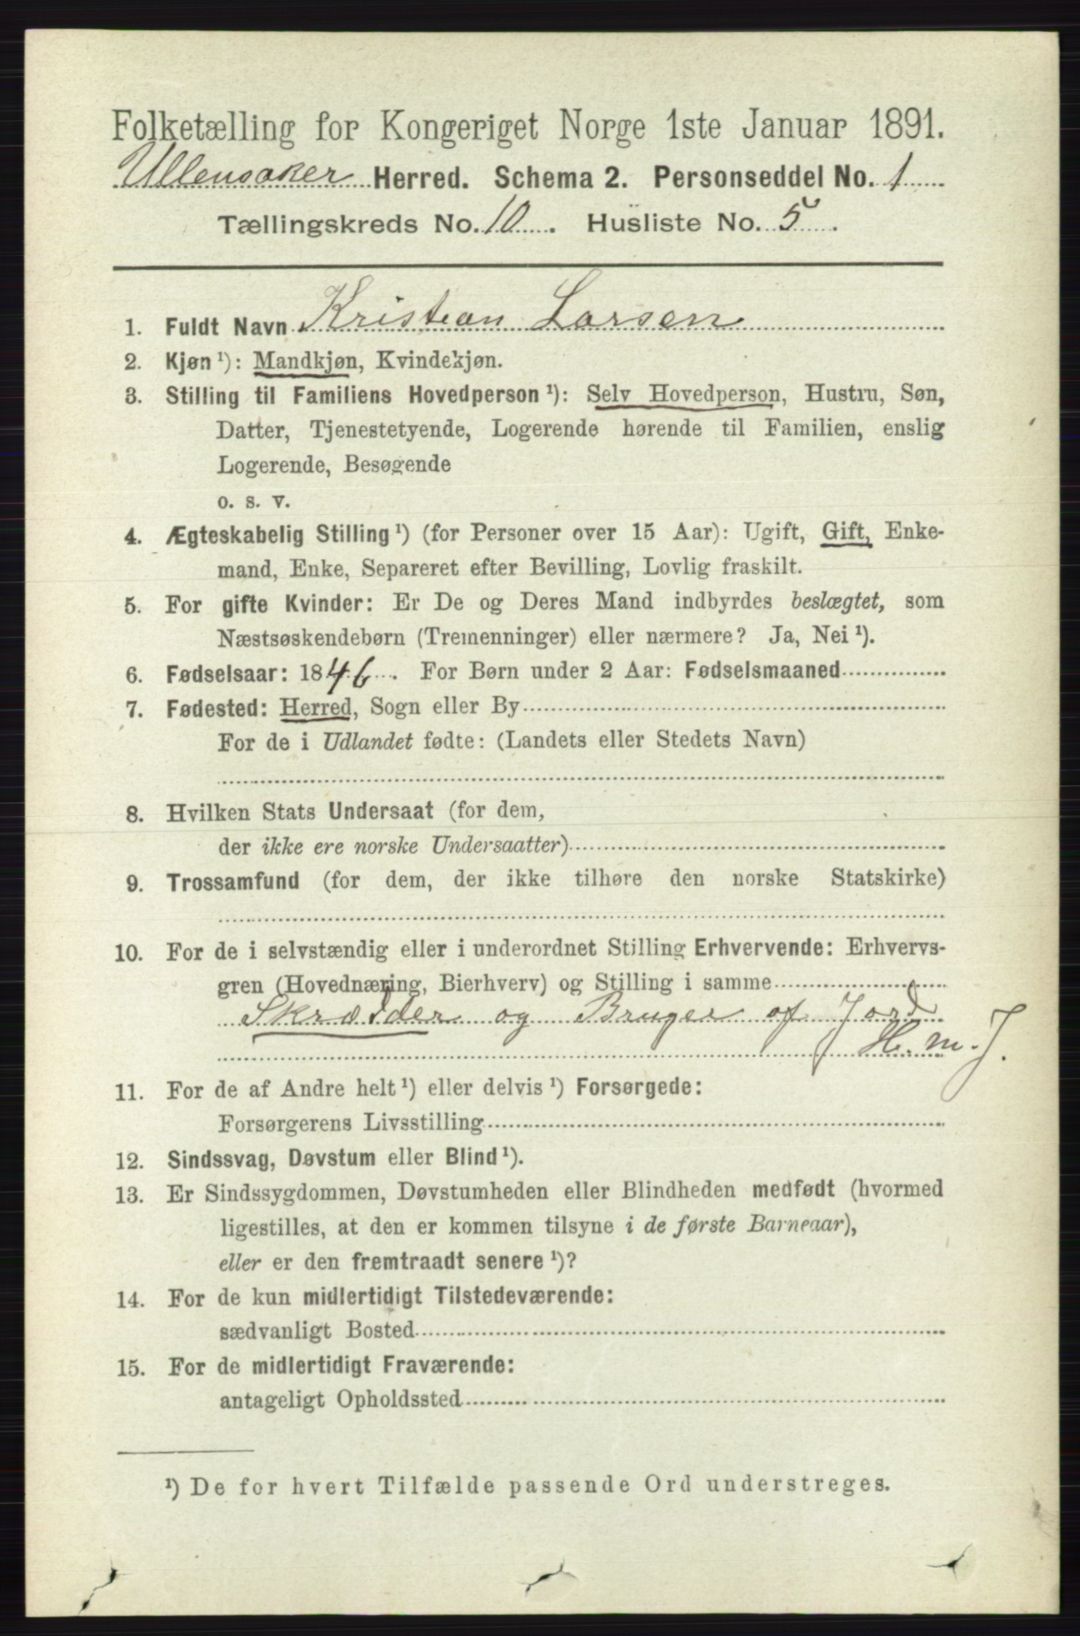 Folketælling for Kongeriget Norge 1ste Januar 1891.
Ullensaker Herred. Schema 2. Personseddel No. 1
Tællingskreds No. 10. Husliste No. 5.
1. Fuldt Navn Kristian Larsen
2. Kjøn ¹): Mandkjøn, Kvindekjøn.
3. Stilling til Familiens Hovedperson ¹): Selv Hovedperson, Hustru, Søn,
Datter, Tjenestetyende, Logerende hørende til Familien, enslig
Logerende, Besøgende
o. s. v.
4. Ægteskabelig Stilling ¹) (for Personer over 15 Aar): Ugift, Gift, Enke-
mand, Enke, Separeret efter Bevilling, Lovlig fraskilt.
5. For gifte Kvinder: Er De og Deres Mand indbyrdes beslægtet, som
Næstsøskendebørn (Tremenninger) eller nærmere? Ja, Nei ¹).
6. Fødselsaar: 1846. For Børn under 2 Aar: Fødselsmaaned
7. Fødested: Herred, Sogn eller By
For de i Udlandet fødte: (Landets eller Stedets Navn)
8. Hvilken Stats Undersaat (for dem,
der ikke ere norske Undersaatter)
9. Trossamfund (for dem, der ikke tilhøre den norske Statskirke)
10. For de i selvstændig eller i underordnet Stilling Erhvervende: Erhvervs-
gren (Hovednæring, Bierhverv) og Stilling i samme
Skrædder og Bruger af Jord
H. m. J.
11. For de af Andre helt ¹) eller delvis ¹) Forsørgede:
Forsørgerens Livsstilling
12. Sindssvag, Døvstum eller Blind ¹).
13. Er Sindssygdommen, Døvstumheden eller Blindheden medfødt (hvormed
ligestilles, at den er kommen tilsyne i de første Barneaar),
eller er den fremtraadt senere ¹)?
14. For de kun midlertidigt Tilstedeværende:
sædvanligt Bosted
15. For de midlertidigt Fraværende:
antageligt Opholdssted
¹) De for hvert Tilfælde passende Ord understreges.